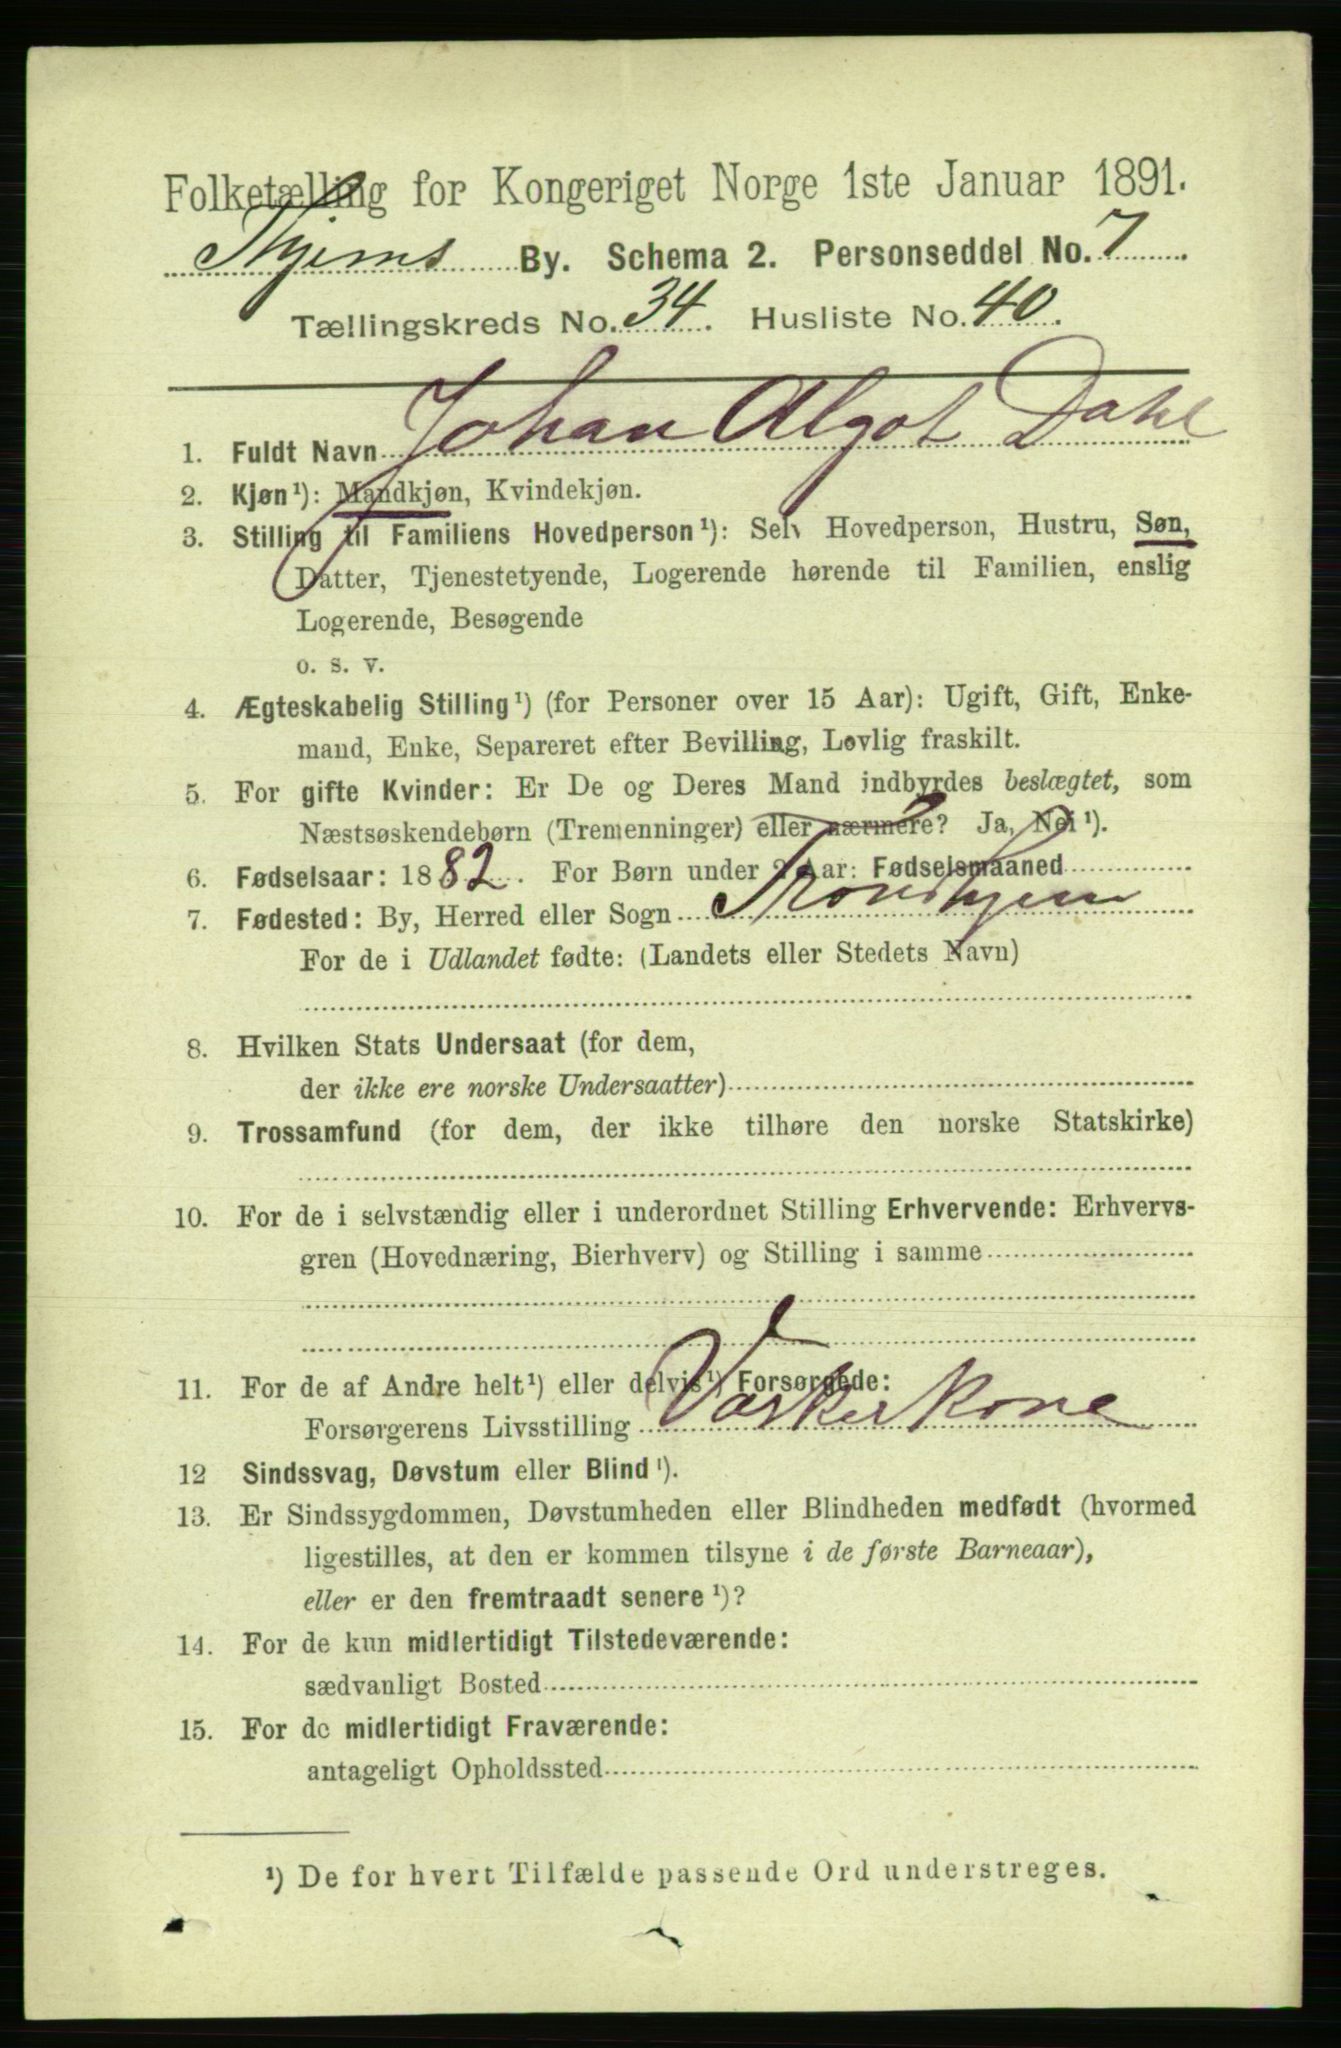 Folketælling for Kongeriget Norge 1ste Januar 1891.
Thjems By. Schema 2. Personseddel No. 7
Tællingskreds No. 34. Husliste No. 40.
1. Fuldt Navn Johan Algot Dahl
2. Kjøn¹): Mandkjøn, Kvindekjøn.
3. Stilling til Familiens Hovedperson¹): Selv Hovedperson, Hustru, Søn,
Datter, Tjenestetyende, Logerende hørende til Familien, enslig
Logerende, Besøgende
o. s. v.
4. Ægteskabelig Stilling¹) (for Personer over 15 Aar): Ugift, Gift, Enke-
mand, Enke, Separeret efter Bevilling, Lovlig fraskilt.
5. For gifte Kvinder: Er De og Deres Mand indbyrdes beslægtet, som
Næstsøskendebørn (Tremenninger) eller nærmere? Ja, Nei¹).
6. Fødselsaar: 1882. For Børn under 2 Aar: Fødselsmaaned
7. Fødested: By, Herred eller Sogn Trondhjem
For de i Udlandet fødte: (Landets eller Stedets Navn)
8. Hvilken Stats Undersaat (for dem,
der ikke ere norske Undersaatter)
9. Trossamfund (for dem, der ikke tilhøre den norske Statskirke)
10. For de i selvstændig eller i underordnet Stilling Erhvervende: Erhvervs-
gren (Hovednæring, Bierhverv) og Stilling i samme
11. For de af Andre helt¹) eller delvis¹) Forsørgede:
Forsørgerens Livsstilling Vaskerkone
12 Sindssvag, Døvstum eller Blind¹).
13. Er Sindssygdommen, Døvstumheden eller Blindheden medfødt (hvormed
ligestilles, at den er kommen tilsyne i de første Barneaar),
eller er den fremtraadt senere¹)?
14. For de kun midlertidigt Tilstedeværende:
sædvanligt Bosted
15. For de midlertidigt Fraværende:
antageligt Opholdssted
¹) De for hvert Tilfælde passende Ord understreges.